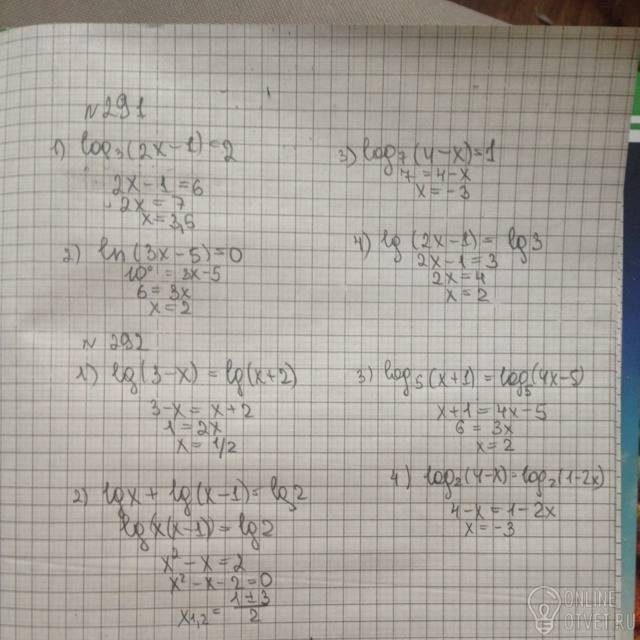 №291
1) log₃(2x-1)=2
2x-1=6
2x=7
x=3,5
2) ln(3x-5)=0
10⁰=3x-5
6=3x
x=2
3) log₇(4-x)=1
7=4-x
x=-3
4) lg(2x-1)=lg3
2x-1=3
2x=4
x=2
№292
1) lg(3-x)=lg(x+2)
3-x=x+2
1=2x
x=1/2
2) lgx+lg(x-1)=lg2
lg(x(x-1))=lg2
x²-x=2
x²-x-2=0
x₁,₂=(1±3)/2
3) log₅(x+1)=log₅(4x-5)
x+1=4x-5
6=3x
x=2
4) log₂(4-x)=log₂(1-2x)
4-x=1-2x
x=-3
ONLINE
OTVET.RU